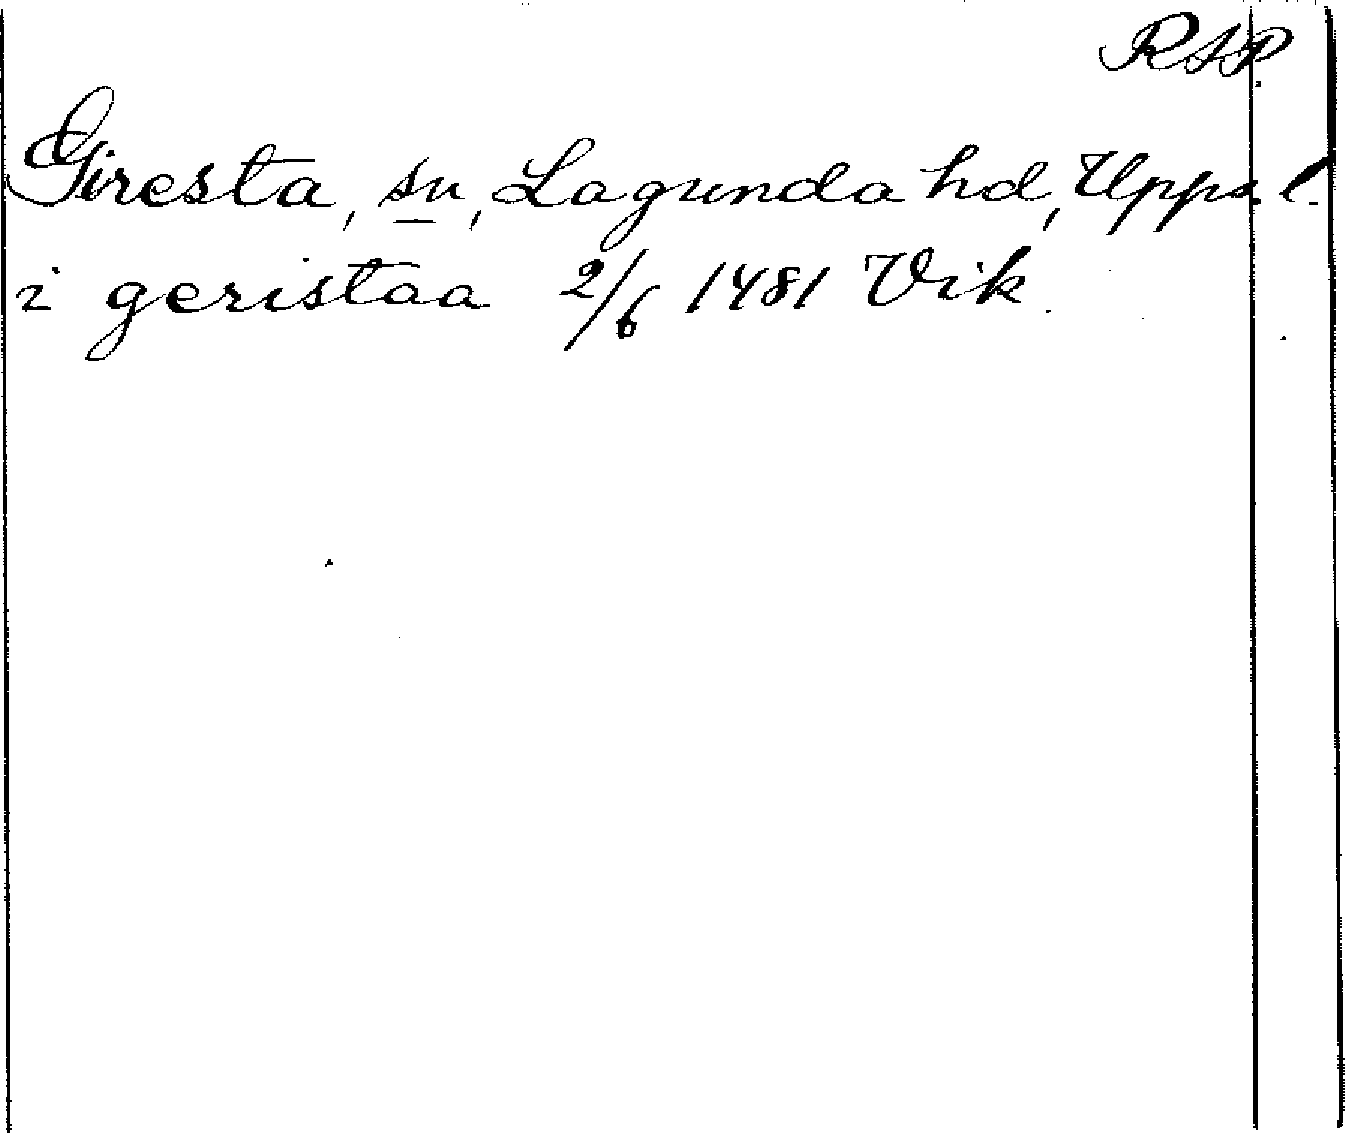 RAP.
Giresta, sn, Lagunda hd, Upps. l.
i geristaa 2/6 1481 Vik